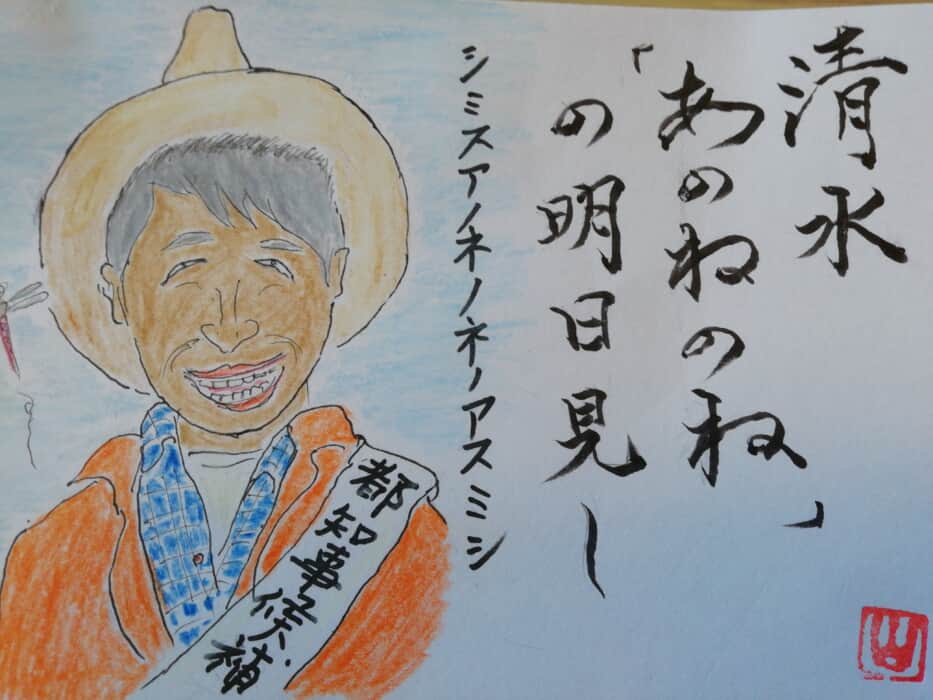 清水
「あのねのね」
の明日見し
シミスアノネノネノアスミシ
都知事候補